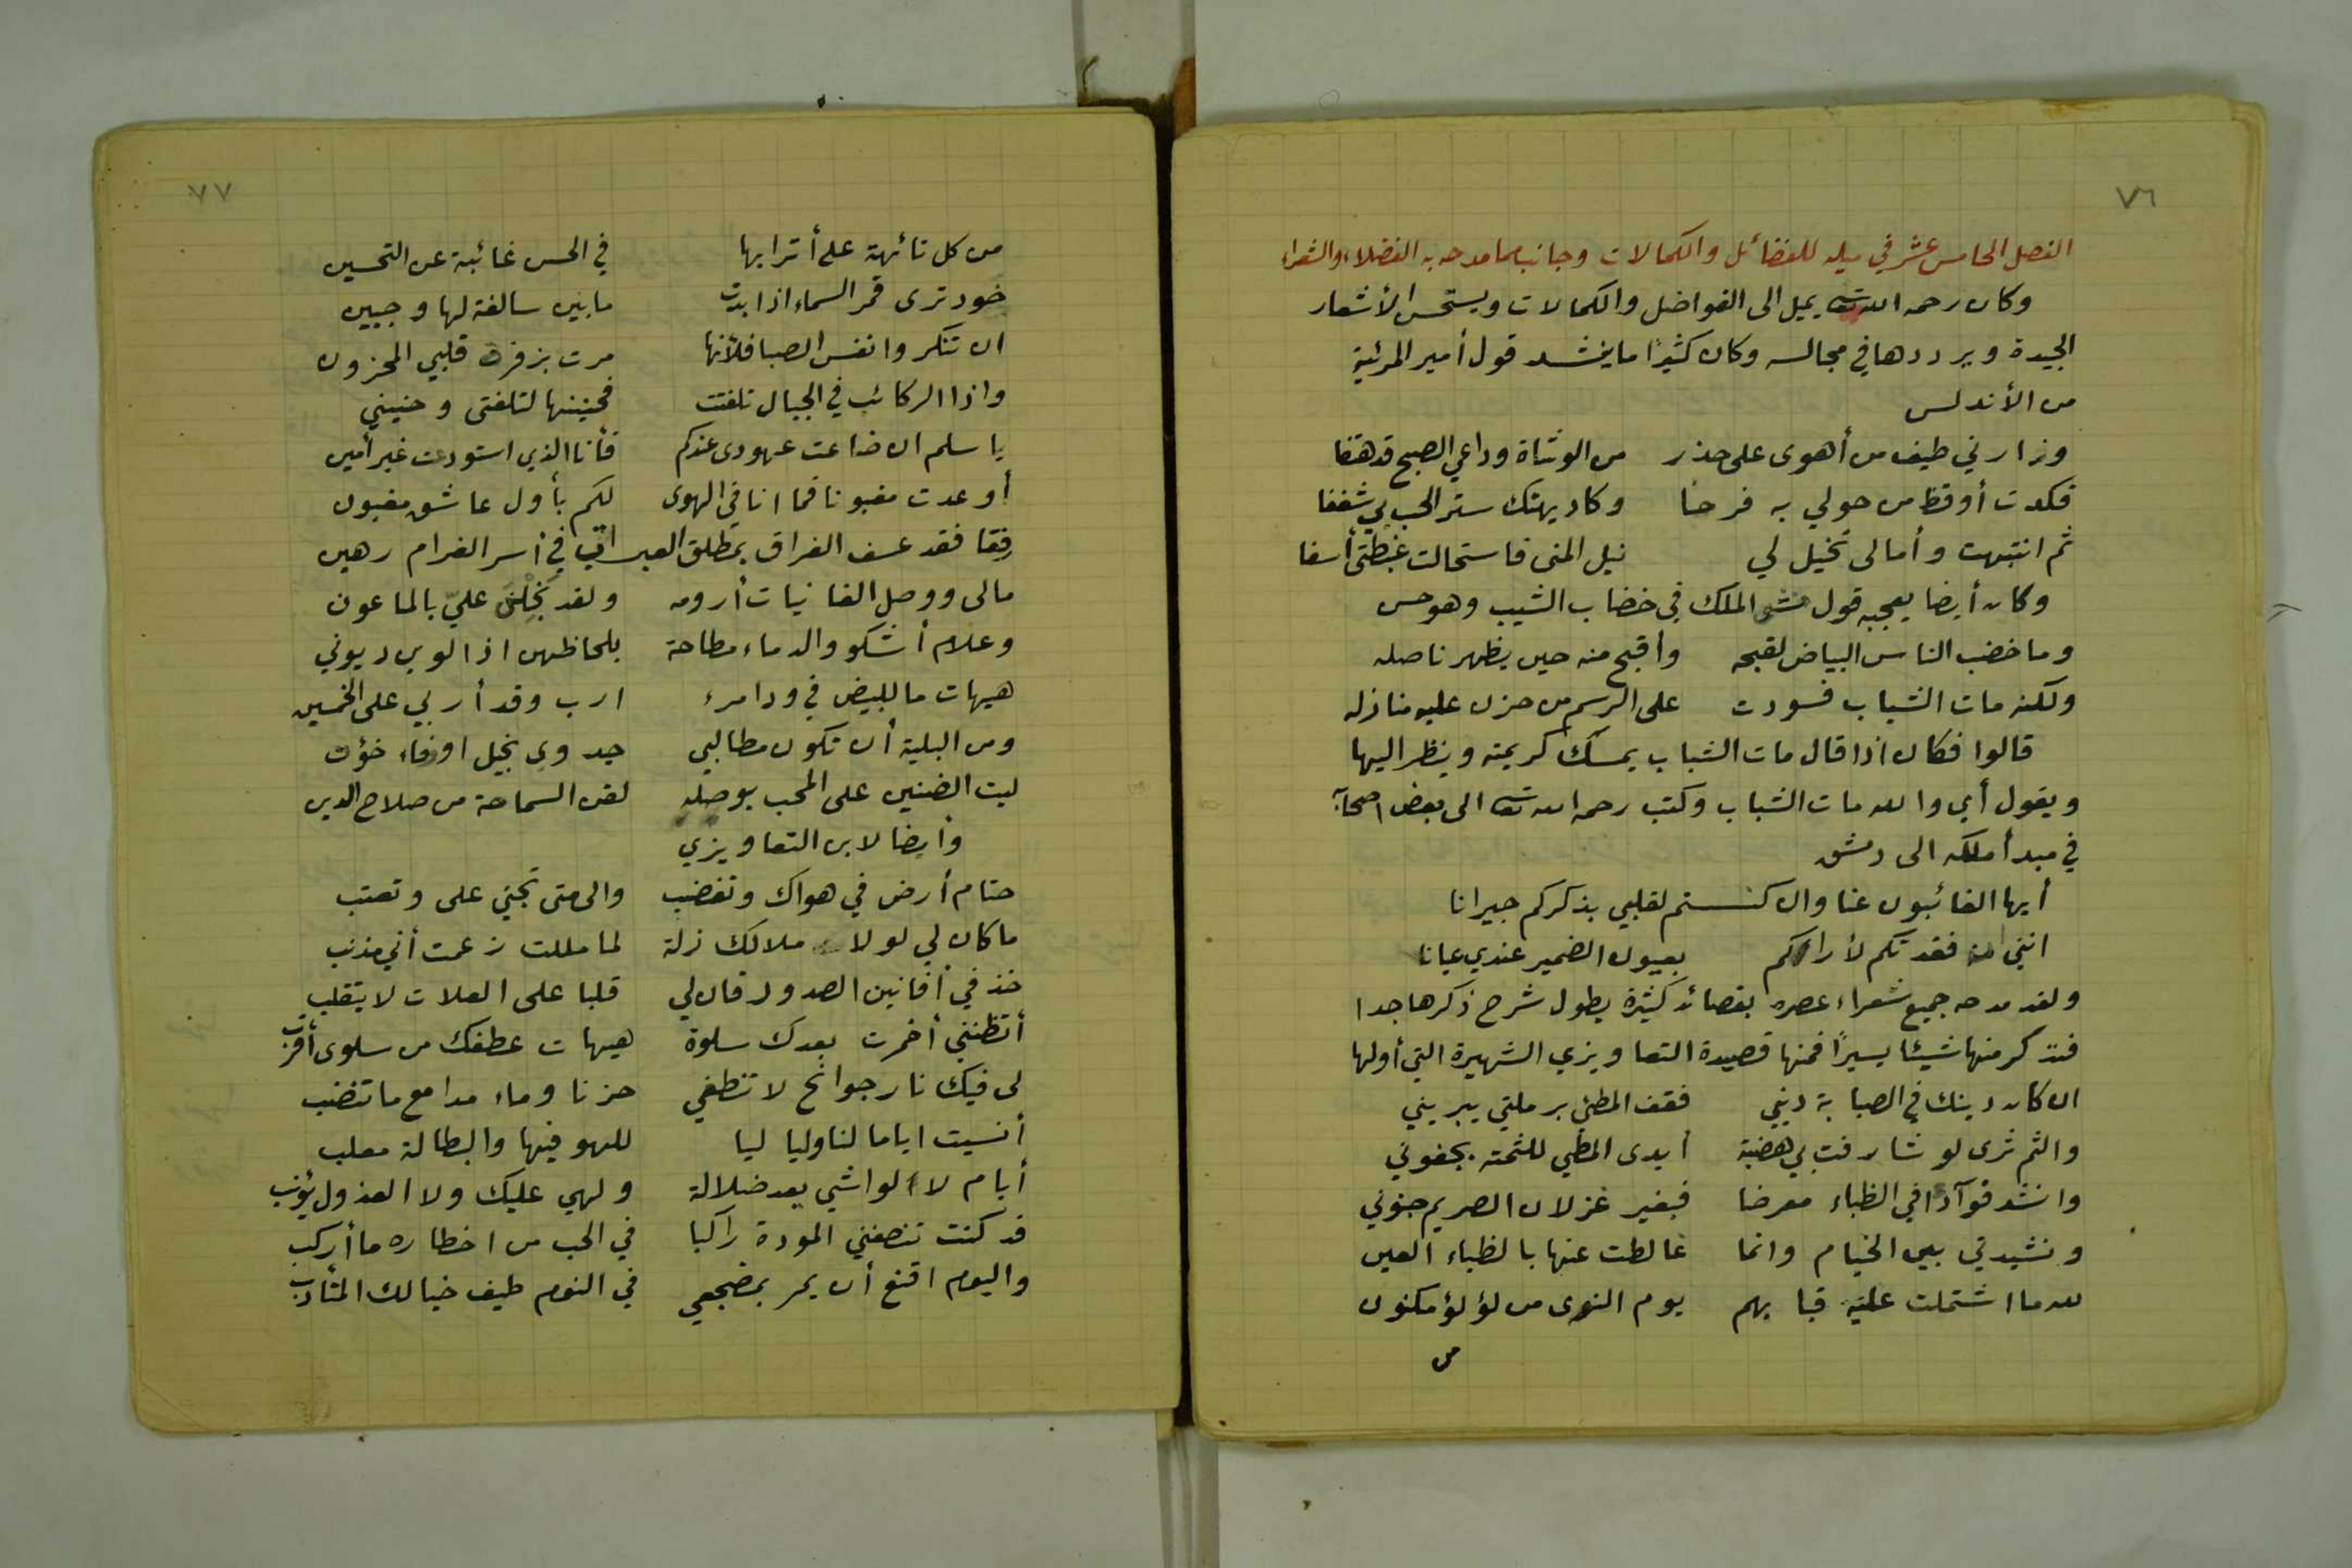 ٧٦
الفصل الخامس عشر في ميله للفضائل والكمالات وجانب مما مدحه به الفضلاء والشعراء
وكان رحمه الله تعالى يميل الى الفواضل والكمالات ويستحسن الأشعار
الجيدة ويرددها في مجالسه وكان كثيرًا ما ينشد قول أمير المرئية
من الأندلس
وزارني طيف من أهوى على حذر من الوشاة وداعي الصبح قد هتفا
فكدت أوقظ من حولي به فرحًا وكاد يهتك ستر الحب بي شغفا
ثم انتبهت وأمالى تخيل لي نيل المنى فاستحالت غبطتى أسفا
وكان أيضا يعجبه قول الملك في خضاب الشيب وهو حسن
وما خضب الناس البياض لقبحه وأقبح منه حين يظهر ناصله
ولكنه مات الشباب فسودت على الرسم من حزن عليه منازله
قالوا فكان اذا قال مات الشباب يمسك كريمته وينظر اليها
ويقول أي والله مات الشباب وكتب رحمه الله تعالى الى بعض اصحابه
في مبدأ ملكه الى دمشق
أيها الغائبون عنا وان كنـــتم لقلبي بذكركم جيرانا
انني مذ فقدتكم لأراكم بعيون الضمير عندي عيانا
ولقد مدحه جميع شعراء عصره بقصائد كثيرة يطول شرح ذكرها جدا
فنذكر منها شيئا يسيرًا فمنها قصيدة التعاويزي الشهيرة التي أولها
ان كان دينك في الصبابة ديني فقف المطي برملتي يبريني
والثم ثرى لو شارفت بي هضبة أيدى المطي للثمته بجفوني
وانشد فوآدا في الظباء معرضا فبغير غزلان الصريم جنوني
ونشيدتي بين الخيام وانما غالطت عنها بالظباء العين
لله ما اشتملت عليه قبابهم يوم النوى من لؤلؤ مكنون
من
٧٧
من كل تائهة على أترابها في الحسن غائبة عن التحسين
خود ترى قمر السماء اذا بدت ما بين سالفة لها وجبين
ان تنكروا نفس الصبا فلأنها مرت بزفرة قلبي المحزون
واذا الركائب في الجبال تلفتت فحنينها لتلفتى وحنيني
يا سلم ان ضاعت عهودى عندكم فأنا الذي استودعت غير أمين
أو عدت مغبونا فما انا في الهوى لكم بأول عاشق مغبون
رفقا فقد عسف الفراق بمطلق العبرات في أسر الغرام رهين
مالى ووصل الغانيات أرومه ولقد بخلن عليّ بالماعون
وعلام أشكو والدماء مطاحة بلحاظهن اذا لوين ديوني
هيهات ما للبيض في ود امرء ارب وقد أربي على الخمسين
ومن البلية أن تكون مطالبي جدوى بخيل او وفاء خؤن
ليت الضنين على المحب بوصله لقن السماحة من صلاح الدين
وأيضا لابن التعاويزي
حتام أرض في هواك وتغضب والى متى تجني على وتعتب
ما كان لي لولا ملالك زلة لما مللت زعمت أني مذنب
خذ في أفانين الصدود فان لي قلبا على العلات لا يتقلب
أتظنني أضمرت بعدك سلوة هيهات عطفك من سلوى أقرب
لى فيك نار جوانح لا تنطفي حزنا وماء مدامع ما تنضب
أنسيت اياما لنا ولياليا للهو فيها والبطالة معلب
أيام لا الواشي يعد ضلالة ولهي عليك ولا العذول يؤنب
قد كنت تنصفني المودة راكبا في الحب من اخطاره ما أركب
واليوم اقنع أن يمر بمضجعي في النوم طيف خيالك المتأدب